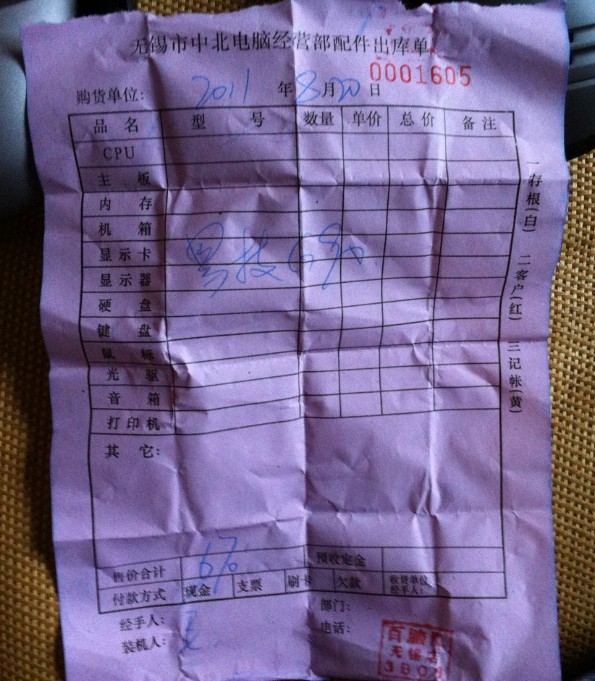 无锡市中北电脑经营部配件出库单
0001605
购货单位: 2011 年 8 月 20 日
品名 型号 数量 单价 总价 备注
CPU
主板
内存
机箱
显示卡
显示器
硬盘
键盘
鼠标
光驱
音箱
打印机
其它:
售价合计 670 预收定金
付款方式 现金 支票 刷卡 欠款 收货单位经手人:
经手人: 部门:
装机人: 电话:
一存根(白) 二客户(红) 三记帐(黄)
百脑汇
无锡店